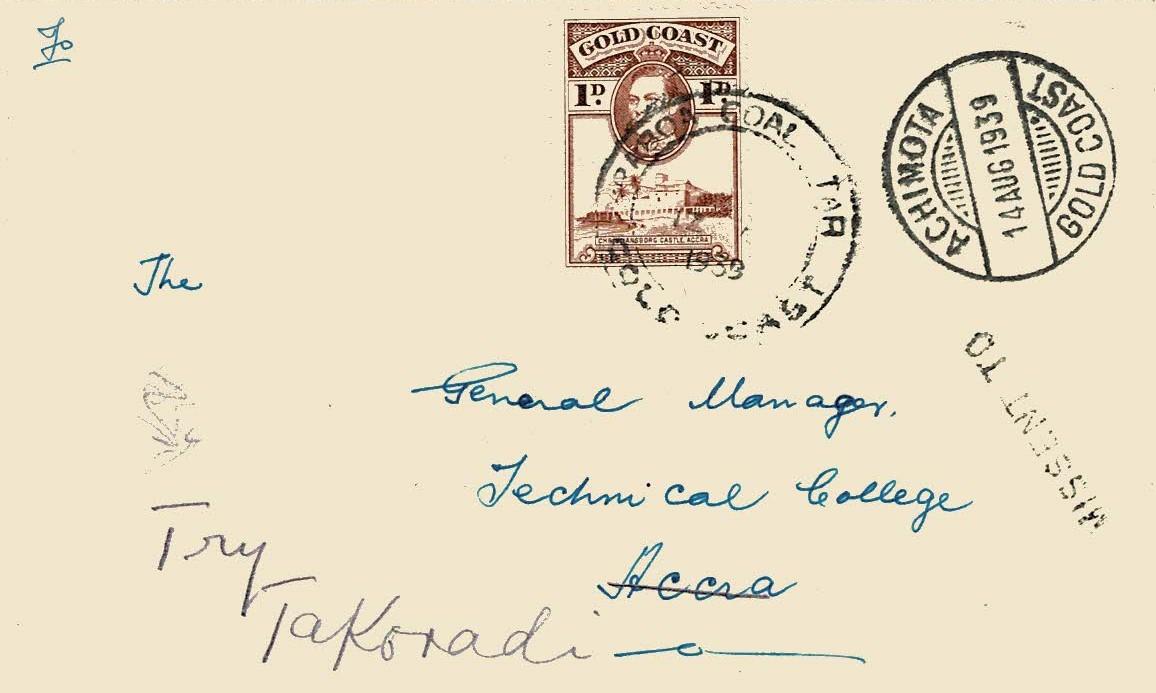 To
GOLD COAST
1D. 1D.
CHRISTIANSBORG CASTLE, ACCRA
COAL TAR
1939
GOLD COAST
ACHIMOTA
14 AUG 1939
GOLD COAST
The
General Manager.
Technical College
Accra
MISSENT TO
Try
Takoradi